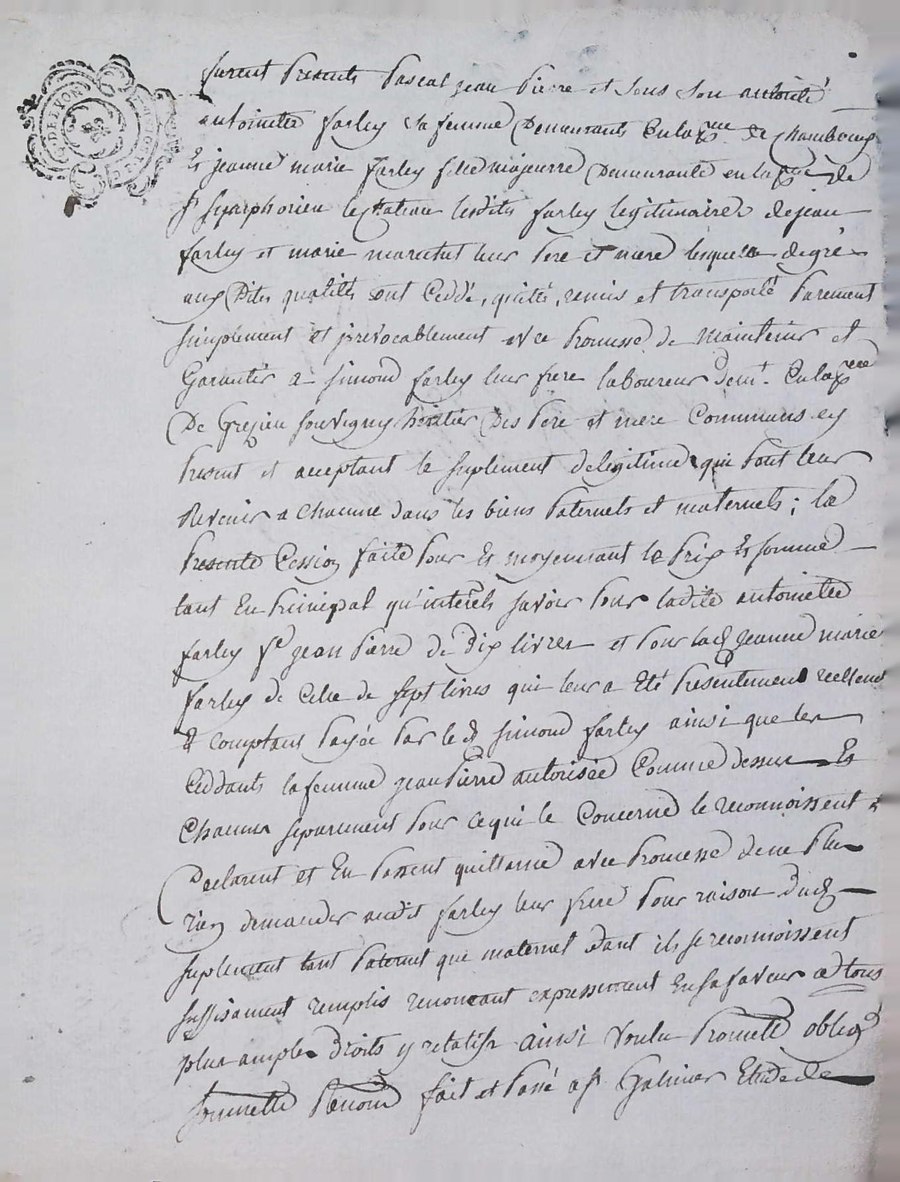 DE LYON
furent presents pascal jean pierre et sous son autorité
antoinette farley sa femme demeurants en la psse de Chambœuf
et jeanne marie farley fille majeurre demeurante en la psse de
st symphorien le chateau lesdits farley legitimaires de jean
farley et marie leur pere et mere lesquels de gré
aux dites qualités ont ceddé, quité, remis et transporté purement
simplement et irrevocablement avec promesse de maintenir et
garantir a simond farley leur frere laboureur demt. en la psse
De Grezieu souvigny heritier des pere et mere communs ey
present et acceptant le suplement de legitime qui peut leur
revenir a chacune dans les biens paternels et maternels; la
presente cession faite pour et moyennant le prix et somme
tant en principal qu'interets savoir pour ladite antoinette
farley fe jean pierre de dix livres et pour lad jeanne marie
farley de celle de sept livres qui leur a eté presentement reellemt
& comptant payée par led simond farley ainsi que les
ceddants la femme jean pierre autorisée comme dessus et
chacun separement pour ce qui le concerne le reconnoissent &
declarent et en passent quittance avec promesse de ne plus
rien demander audit farley leur frere pour raison dud
suplement tant paternel que maternel dont ils se reconnoissent
suffisament remplis renonceant expressement en sa faveur a tous
plus amples droits y relatifs ainsi voulu promette oblige
soumette renonce fait et passé a st Galmier Etude de